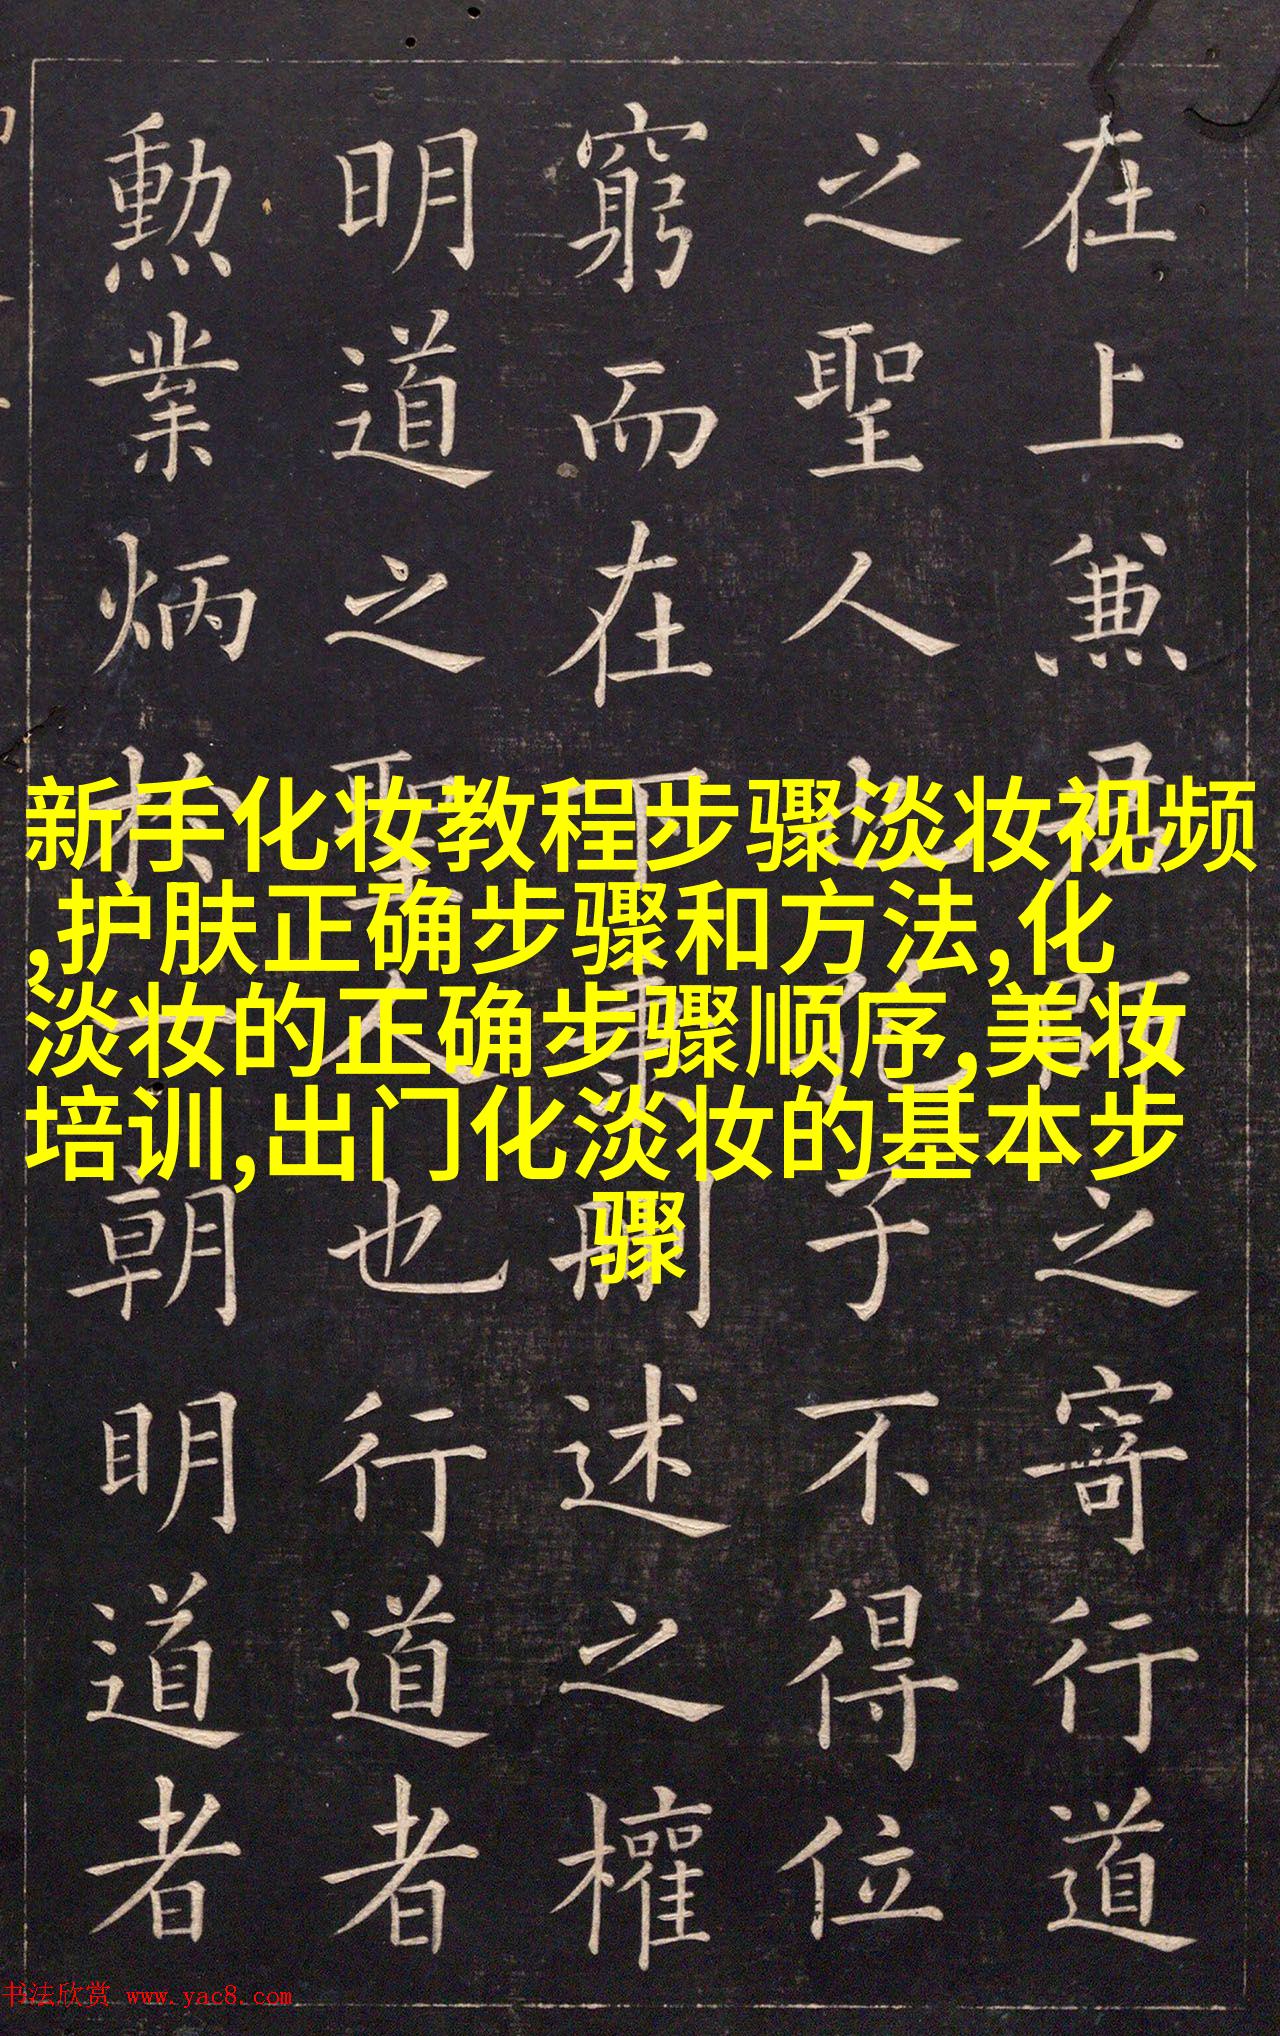 在上兼君師之寄行道
之聖人也孔子不得位
窮而在下秉刪述之權
明道之聖人也行道者
勳業炳於一朝明道者
新手化妆教程步骤淡妆视频
,护肤正确步骤和方法,化
淡妆的正确步骤顺序,美妆
培训,出门化淡妆的基本步
骤
书法欣赏 www.yac8.com